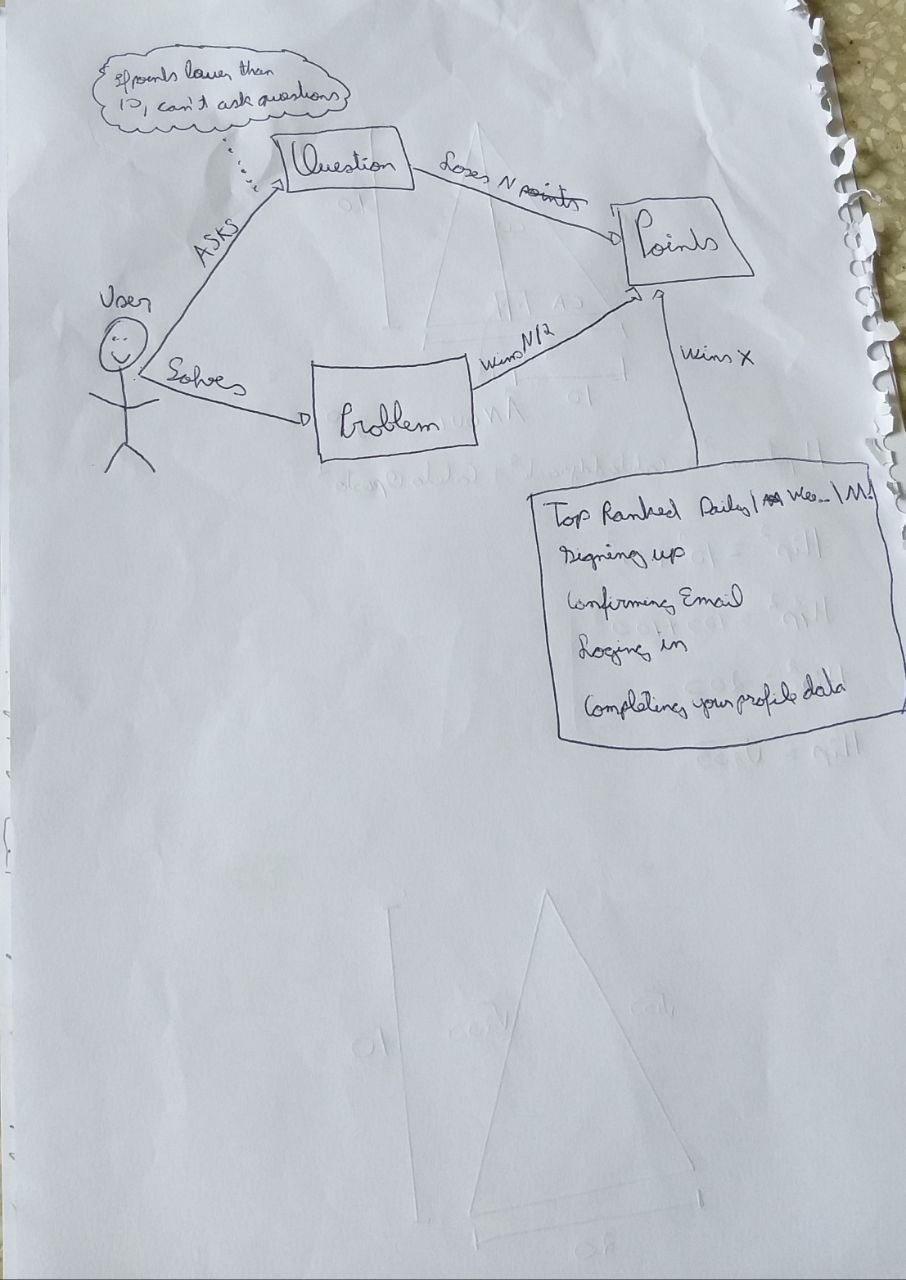 If points lower than
10, can't ask questions
Question
Loses N points
Points
ASKS
User
Solves
Problem
Wins N/2
Wins X
Top Ranked Daily / We.. / M.
Signing up
Confirming Email
Loging in
Completing your profile data
10